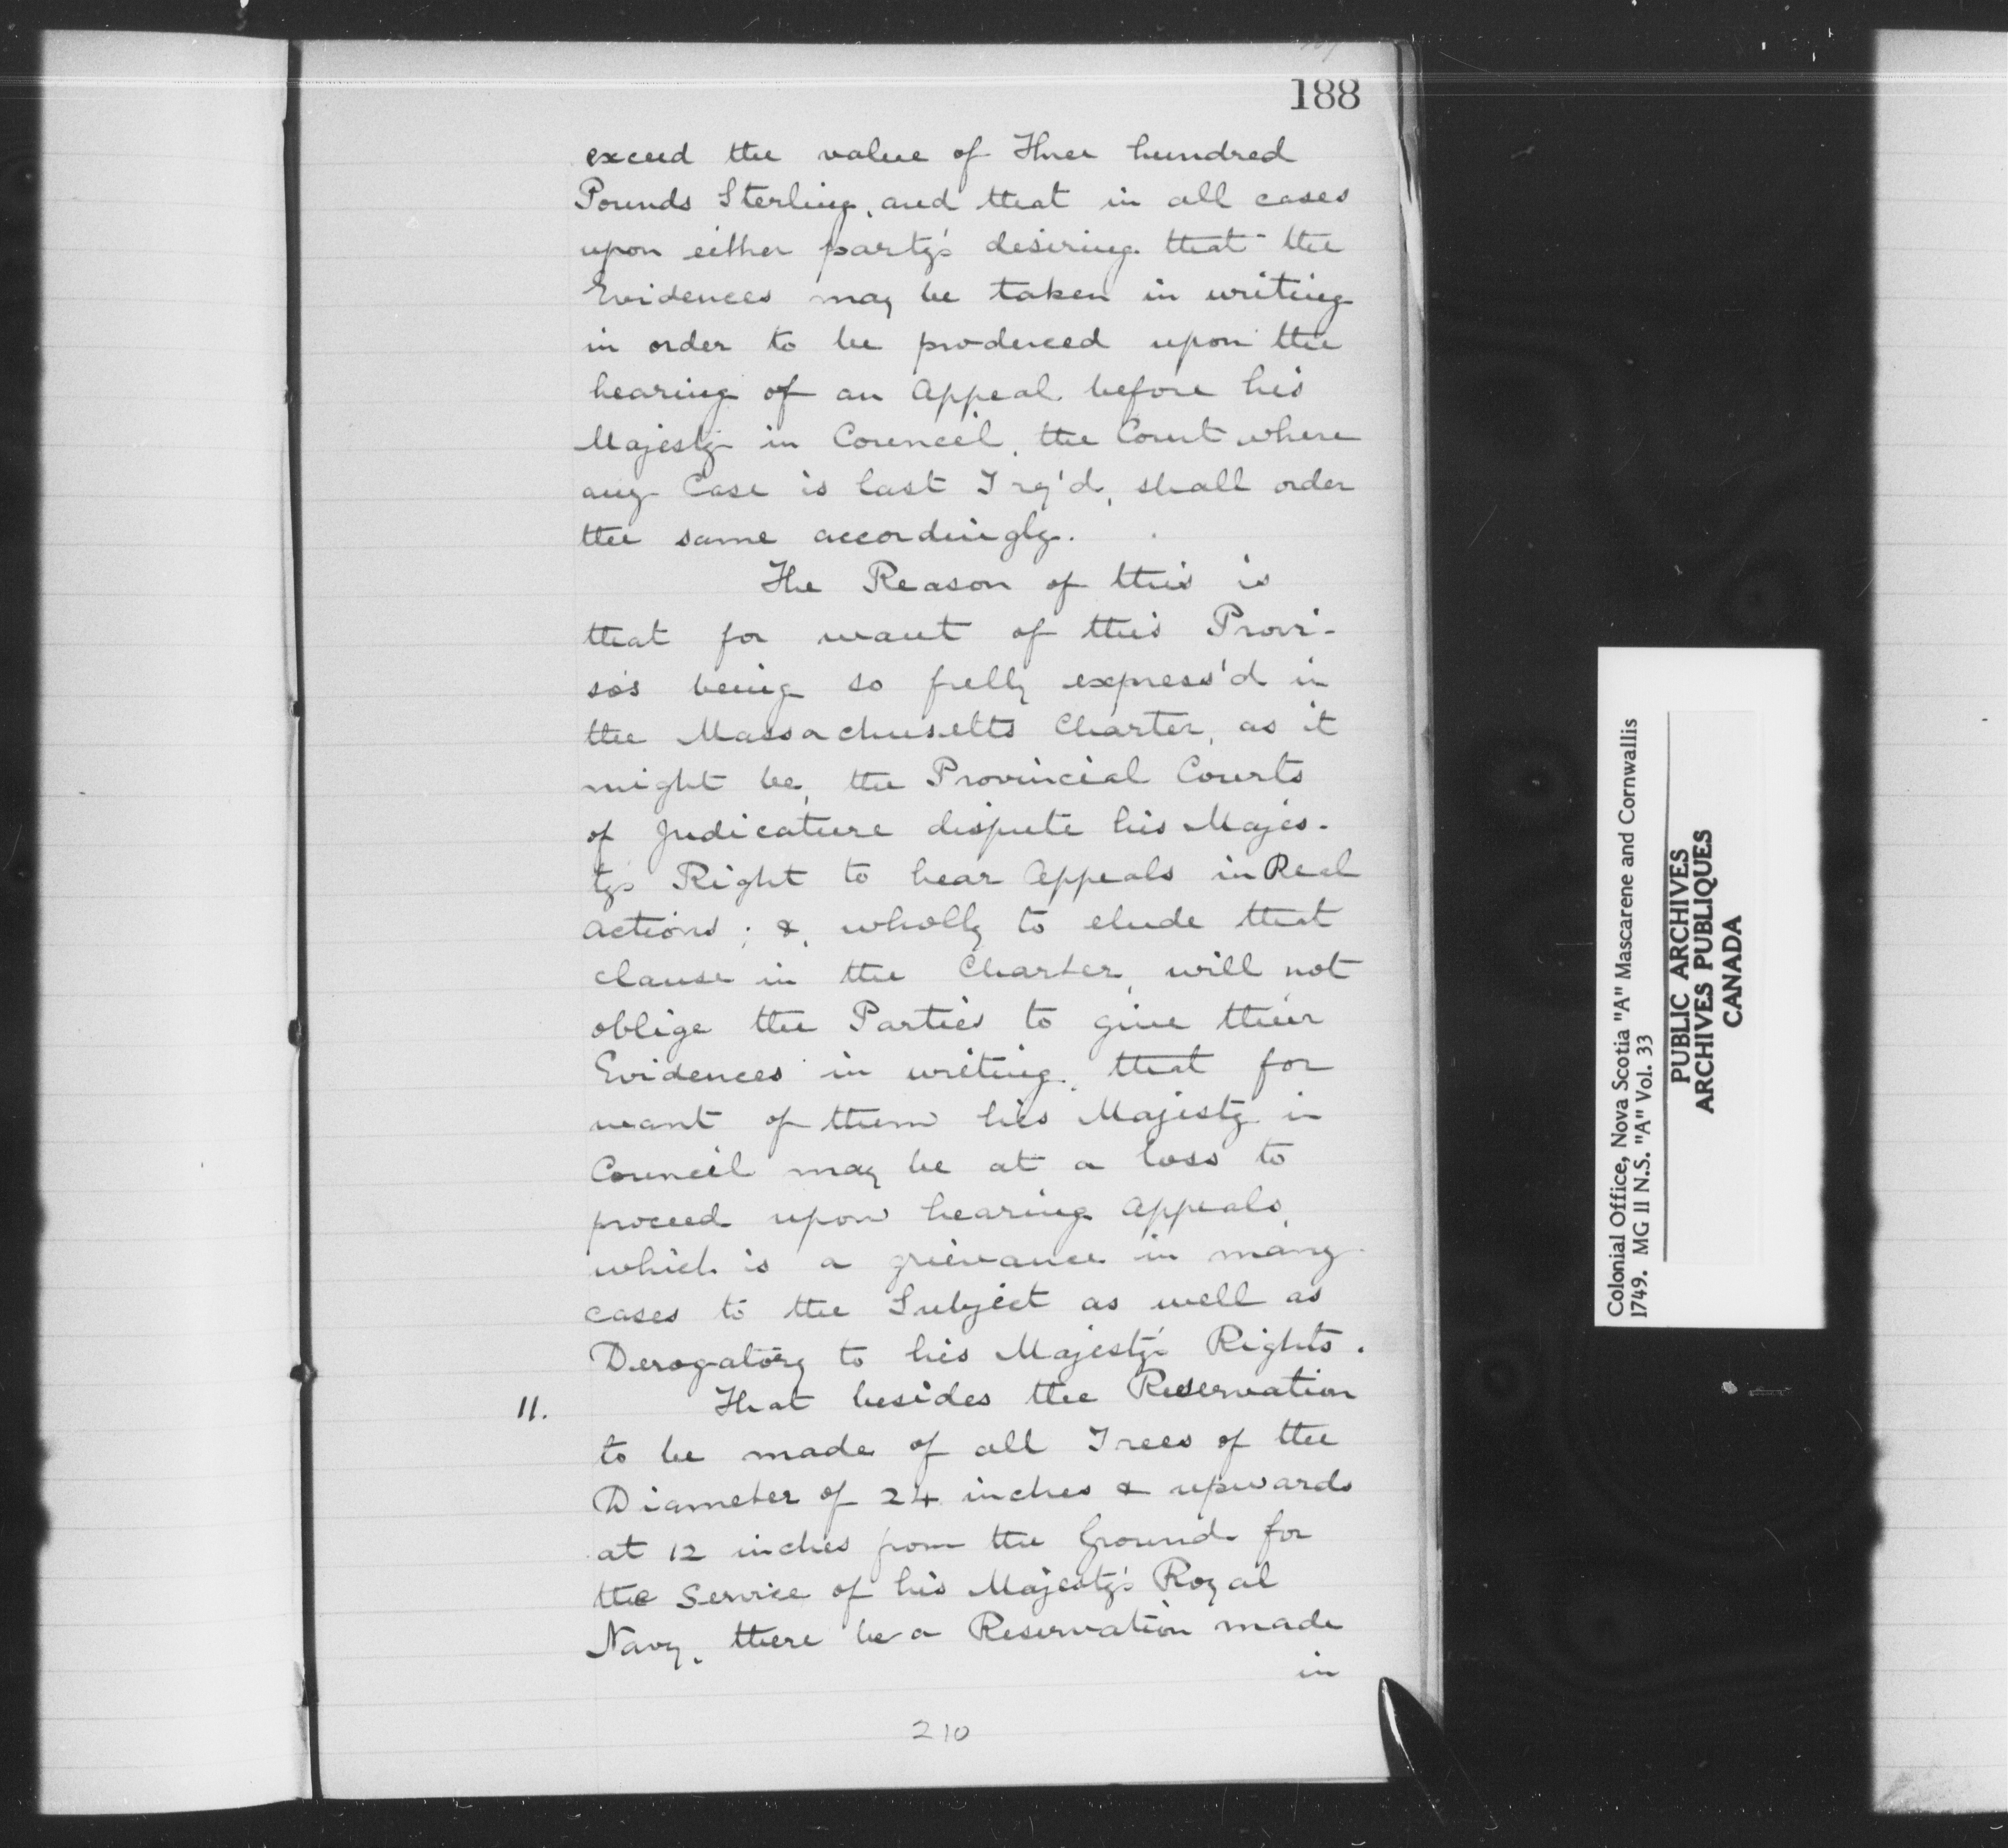 188
exceed the value of Three hundred
Pounds Sterling, and that in all cases
upon either party's desiring that the
Evidences may be taken in writing
in order to be produced upon the
hearing of an Appeal before his
Majesty in Council, the Court where
any Case is last Try'd, shall order
the same accordingly.
The Reason of this is
that for want of this Provi-
so's being so fully express'd in
the Massachusetts Charter, as it
might be, the Provincial Courts
of Judicature dispute his Majes-
ty's Right to hear Appeals in Real
actions; &, wholly to elude that
clause in the Charter, will not
oblige the Parties to give their
Evidences in writing, that for
want of them his Majesty in
Council may be at a loss to
proceed upon hearing Appeals,
which is a grievance in many
cases to the Subject as well as
Derogatory to his Majesty's Rights.
11. That besides the Reservation
to be made of all Trees of the
Diameter of 24 inches & upwards
at 12 inches from the Ground for
the Service of his Majesty's Royal
Navy, there be a Reservation made
in
210
Colonial Office, Nova Scotia "A" Mascarene and Cornwallis
1749. MG 11 N.S. "A" Vol. 33
PUBLIC ARCHIVES
ARCHIVES PUBLIQUES
CANADA